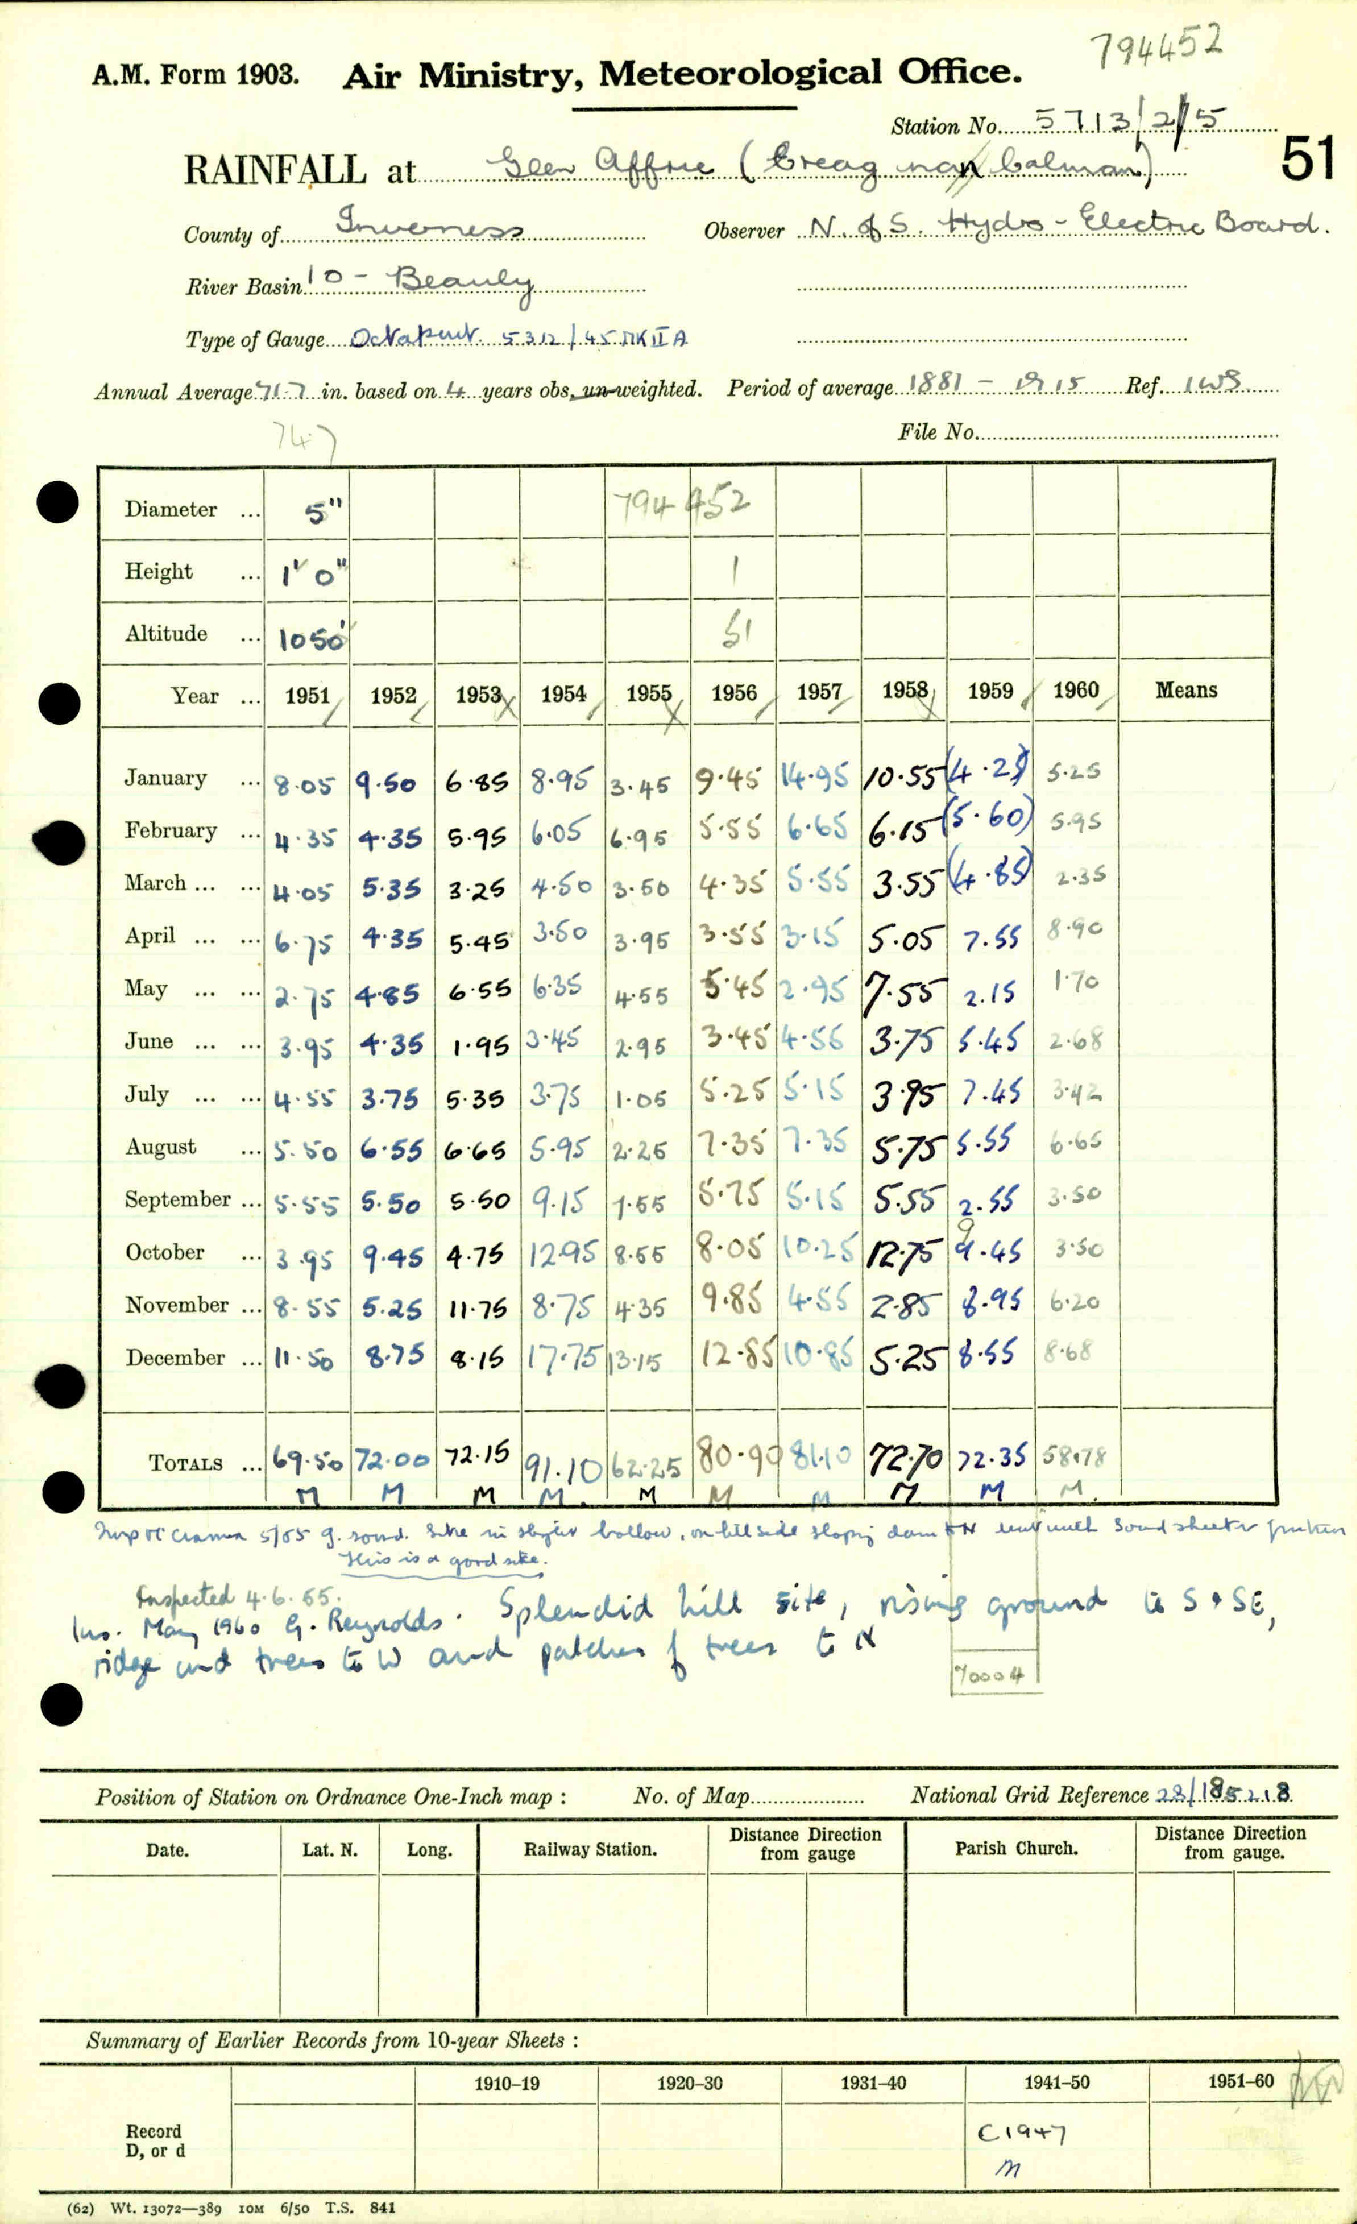 794452
A.M. Form 1903. Air Ministry, Meteorological Office.
Station No. 5713/2/5
51
RAINFALL at Glen Affric (Creag nan Calman)
County of Inverness Observer N. of S. Hydro-Electric Board.
River Basin 10 - Beauly
Type of Gauge Octapent. 5312/45 MK II A
Annual Average 71.7 in. based on 4 years obs. un-weighted. Period of average 1881 - 1915 Ref. IWS
747 File No.
Diameter ... 5" 794452
Height ... 1' 0" 1
Altitude ... 1050' 51
Year ... 1951 1952 1953 1954 1955 1956 1957 1958 1959 1960 Means
January ... 8.05 9.50 6.85 8.95 3.45 9.45 14.95 10.55 (4.25) 5.25
February ... 4.35 4.35 5.95 6.05 6.95 5.55 6.65 6.15 (5.60) 5.95
March ... ... 4.05 5.35 3.25 4.50 3.50 4.35 5.55 3.55 (4.85) 2.35
April ... ... 6.75 4.35 5.45 3.50 3.95 3.55 3.15 5.05 7.55 8.90
May ... ... 2.75 4.85 6.55 6.35 4.55 5.45 2.95 7.55 2.15 1.70
June ... ... 3.95 4.35 1.95 3.45 2.95 3.45 4.55 3.75 5.45 2.68
July ... ... 4.55 3.75 5.35 3.75 1.05 5.25 5.15 3.95 7.45 3.42
August ... 5.50 6.55 6.65 5.95 2.25 7.35 7.35 5.75 5.55 6.65
September ... 5.55 5.50 5.50 9.15 7.55 5.75 5.15 5.55 2.55 3.50
October ... 3.95 9.45 4.75 12.95 8.55 8.05 10.25 12.75 9.45 3.50
November ... 8.55 5.25 11.75 8.75 4.35 9.85 4.55 2.85 8.95 6.20
December ... 11.50 8.75 8.15 17.75 13.15 12.85 10.85 5.25 8.55 8.68
TOTALS ... 69.50 72.00 72.15 91.10 62.25 80.90 81.10 72.70 72.35 58.78
M M M M. M M M M M M.
5/55 g. sound. Site in slight hollow, on hillside sloping down
This is a good site.
Inspected 4.6.55.
Ins. May 1960 G. Reynolds. Splendid hill site, rising ground to S + SE,
ridge and trees to W and patches of trees to N
70004
Position of Station on Ordnance One-Inch map : No. of Map National Grid Reference 28/185218
Date. Lat. N. Long. Railway Station. Distance from Direction gauge Parish Church. Distance from Direction gauge.
Summary of Earlier Records from 10-year Sheets :
1910–19 1920–30 1931–40 1941–50 1951–60
Record C1947
D, or d M
(62) Wt. 13072—389 10M 6/50 T.S. 841